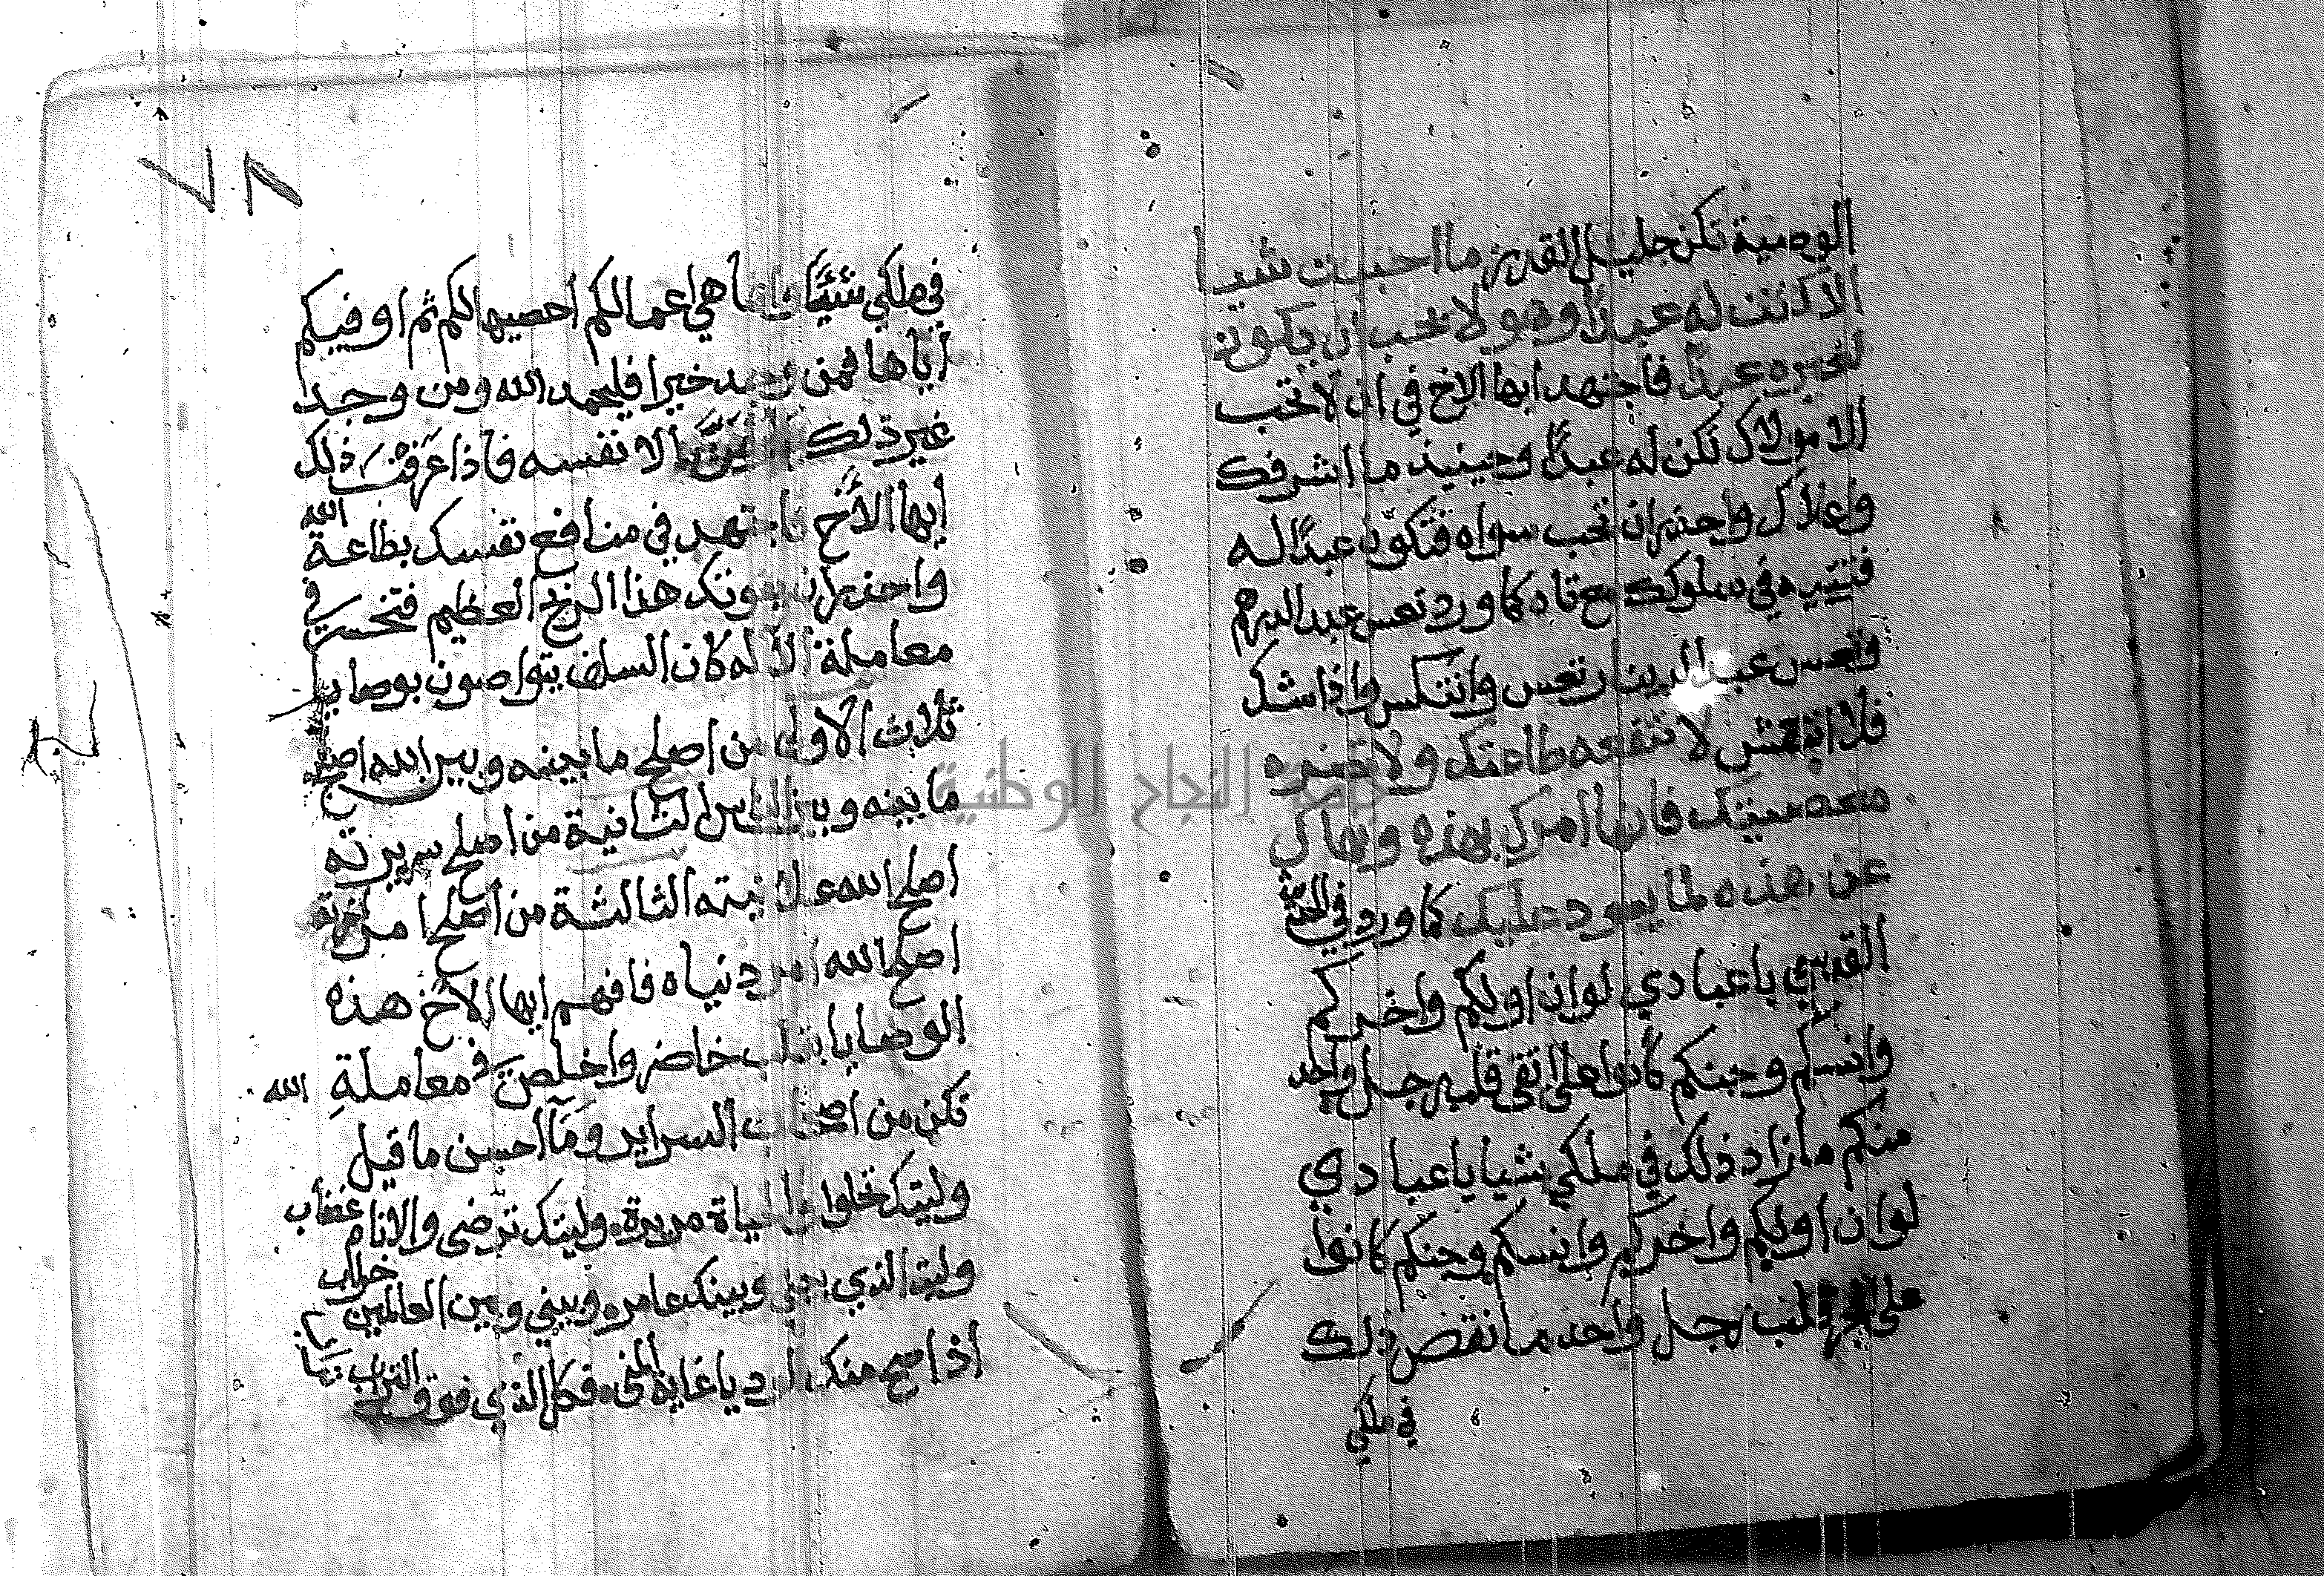 الوصية تكن جليل القدر ما احببت شيا
الا كنت له عبدًا وهو لا يحب ان يكون
لغيره عبدًا فاجتهد ايها الاخ في ان لا تحب
الا مولاك تكن له عبدًا وحينيذ ما اشرفك
واعلاك واحذر ان تحب سواه فتكون عبدًا له
فتتيه في سلوك مع تاه كما ورد تعس عبد الدرهم
وتعس عبد الدينار تعس وانتكس واذا شك
فلا انتقش لا تنفعه طاعتك ولا تضره
معصيتك فانها امرك بهذه ونهاك
عن هذه لما يعود عليك كما ورد في الحديث
القدسي يا عبادي لو ان اولكم واخركم
وانسكم وجنكم كانوا على اتقى قلب رجل واحد
منكم ما زاد ذلك في ملكي شيا يا عبادي
لو ان اولكم واخركم وانسكم وجنكم كانوا
على افجر قلب رجل واحد ما نقص ذلك
في ملكي
٧٨
في ملكي شيئًا وانما هي اعمالكم احصيها لكم ثم اوفيكم
اياها فمن وجد خيرا فليحمد الله ومن وجد
غير ذلك الا نفسه فاذا عرفت ذلك
ايها الاخ فاجتهد في منافع نفسك بطاعة الله
واحذر ان يفوتك هذا الربح العظيم فتخسر في
معاملة الاله كان السلف يتواصون بوصايا
ثلاث الاولى من اصلح ما بينه وبين الله اصلح
ما بينه وبين الناس الثانية من اصلح سريرته
اصلح الله علانيته الثالثة من اصلح امر اخرته
اصلح الله امر دنياه فافهم ايها الاخ هذه
الوصايا بقلب حاضر واخلص في معاملةِ الله
تكن من اصحاب السراير وما احسن ما قيل
وليتك تحلوا والحياة مريرة وليتك ترضى والانام غضاب
وليت الذي بيني وبينك عامر وبيني وبين العالمين خراب
اذا صح منك الود يا غاية المنى فكل الذي فوق التراب تراب
جامعة النجاح الوطنية